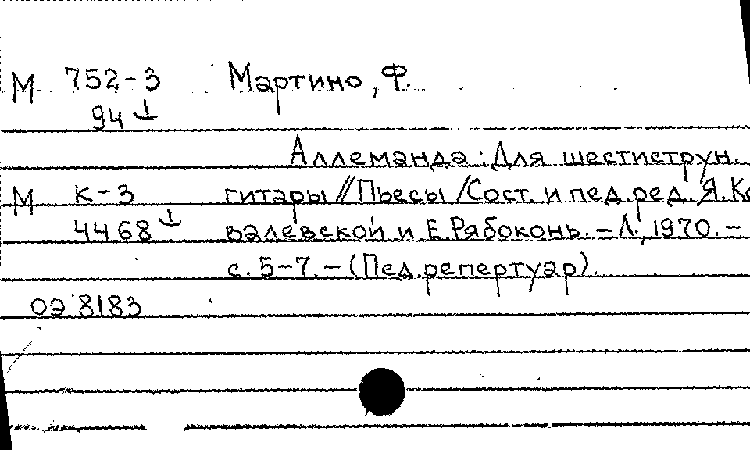 М 752-3 Мартино, Ф.
94
Аллеманда: Для шестиструн.
М К-3 гитары // Пьесы / Сост. и пед. ред. Я. Ко
4468 валевской и Е. Рябоконь. – Л., 1970. –
с. 5-7. – (Пед. репертуар).
оэ 8183